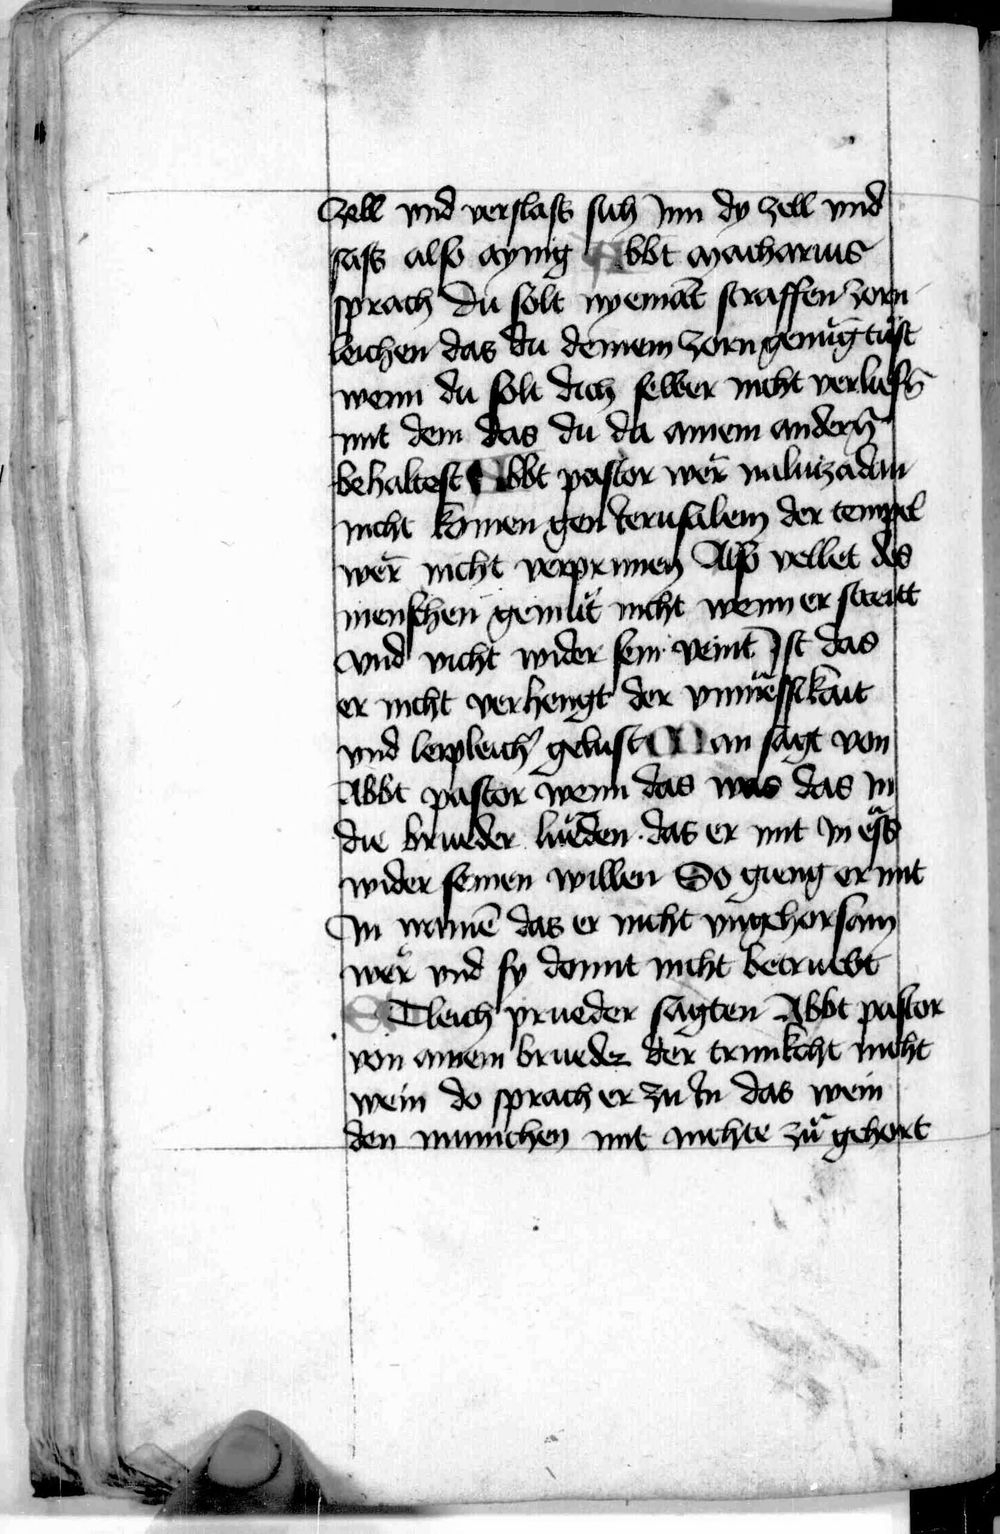 Zell vnd verslass sich Inn dy zell vnd
sass also aynig Abbt Macharius
sprach Du solt nyemāt straffen zorn
leichen das du deinem zorn genůg tůst
wenn du solt dich selber nicht verliesn̄
mit dem das du da ainem andern̄
behaltest Abbt pastor wer̈ nabuzadan
nicht komen gen Jerusalem der tempel
wer̈ nicht verprunnen Also vellet des
menschen gemůt nicht wenn er streitt
vnd vicht wider sein veint Ist das
er nicht verhengt der vnmëssikait
vnd leipleich̾ gelust Man sagt von
Abbt pastor wenn das was das in
die brueder lůeden das er mit in ëss
wider seinen willen So gieng er mit
In wainē das er nicht vngehorsam
wër vnd sy domit nicht betruebt
Etleich prueder sagten Abbt pastor
von ainem brueder der trinkcht nicht
wein do sprach er zu In das wein
den munichen mit nichte zů gehort